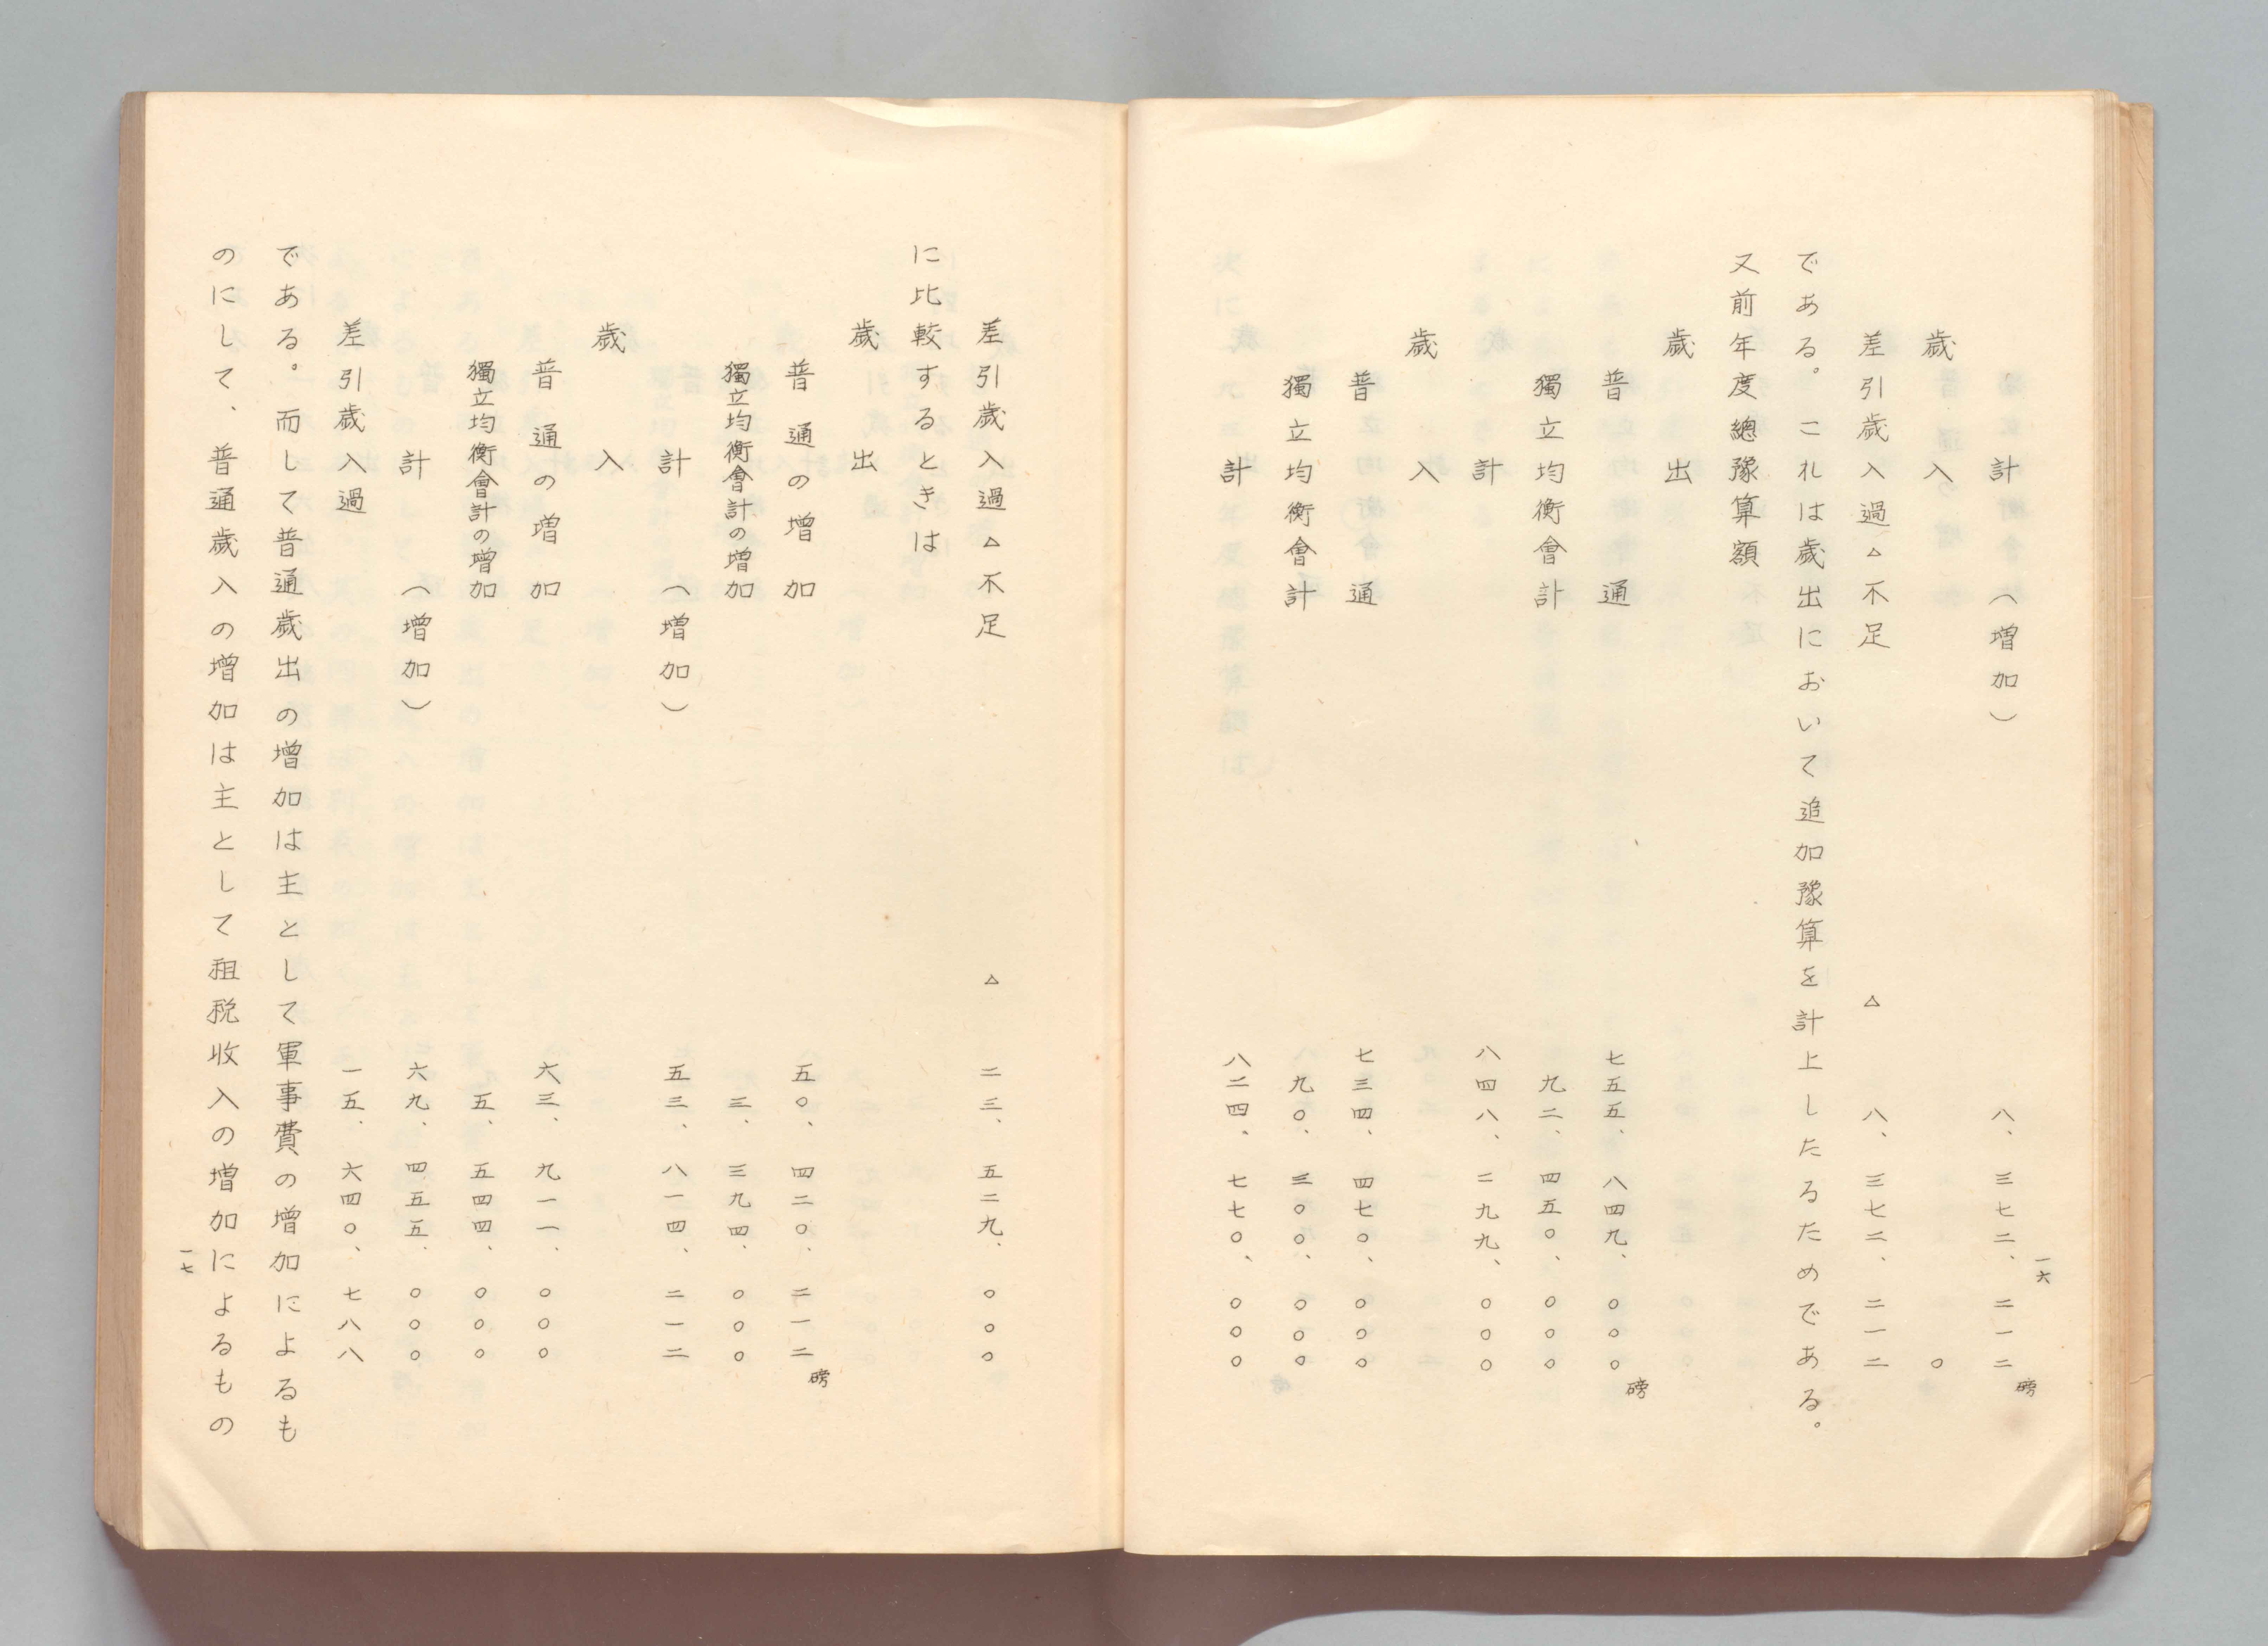 計　（増加）　八、三七二、二一二磅
歳入　〇
差引歳入過△不足　△　八、三七二、二一二
である。これは歳出において追加豫算を計上したるためである。
又前年度總豫算額
歳出
普通　七五五、八四九、〇〇〇磅
獨立均衡會計　九二、四五〇、〇〇〇
計　八四八、二九九、〇〇〇
歳入
普通　七三四、四七〇、〇〇〇
獨立均衡會計　九〇、三〇〇、〇〇〇
計　八二四、七七〇、〇〇〇
一六
差引歳入過△不足　△　二三、五二九、〇〇〇
に比較するときは
歳出
普通の増加　五〇、四二〇、二一二磅
獨立均衡會計の増加　三、三九四、〇〇〇
計　（増加）　五三、八一四、二一二
歳入
普通の増加　六三、九一一、〇〇〇
獨立均衡會計の増加　五、五四四、〇〇〇
計　（増加）　六九、四五五、〇〇〇
差引歳入過　一五、六四〇、七八八
である。而して普通歳出の増加は主として軍事費の増加によるも
のにして、普通歳入の増加は主として租税收入の増加によるもの
一七